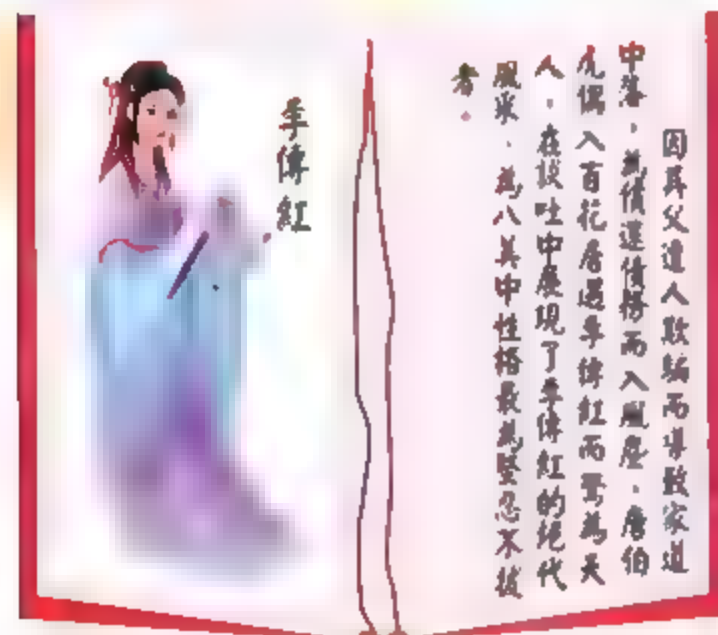 因其父遭人欺騙而導致家道
中落，為償還債務而入風塵，唐伯
虎偶入百花居遇李傳紅而驚為天
人。在談吐中展現了李傳紅的絕代
風采，為八美中性格最為堅忍不拔
者。
李傳紅